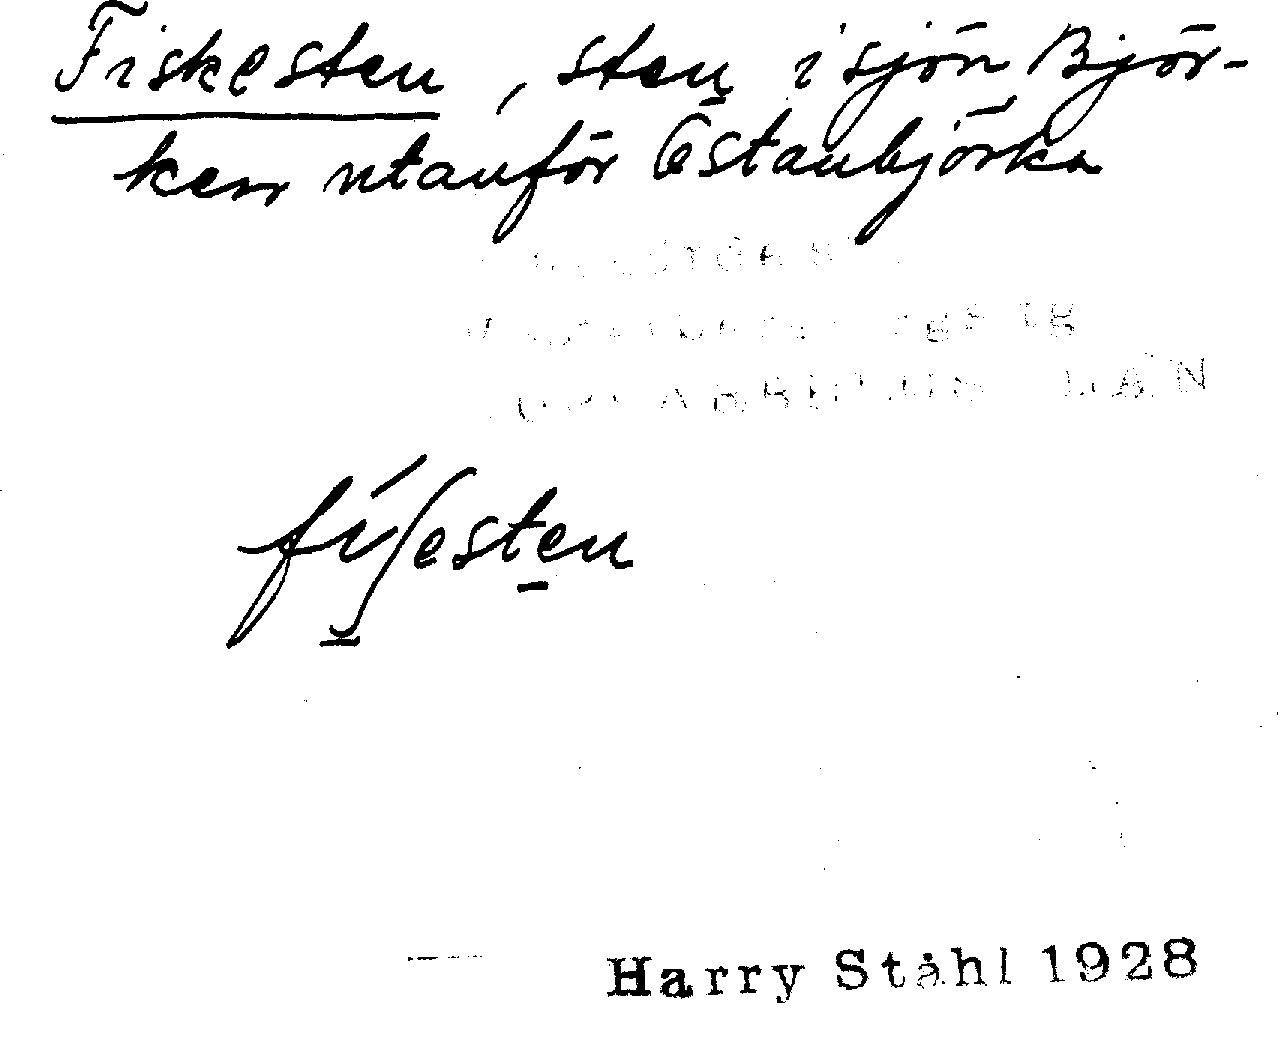 Fiskesten, sten i sjön Björ-
ken utanför Östanbjörka
LÄN
fíʃesten
Harry Ståhl 1928